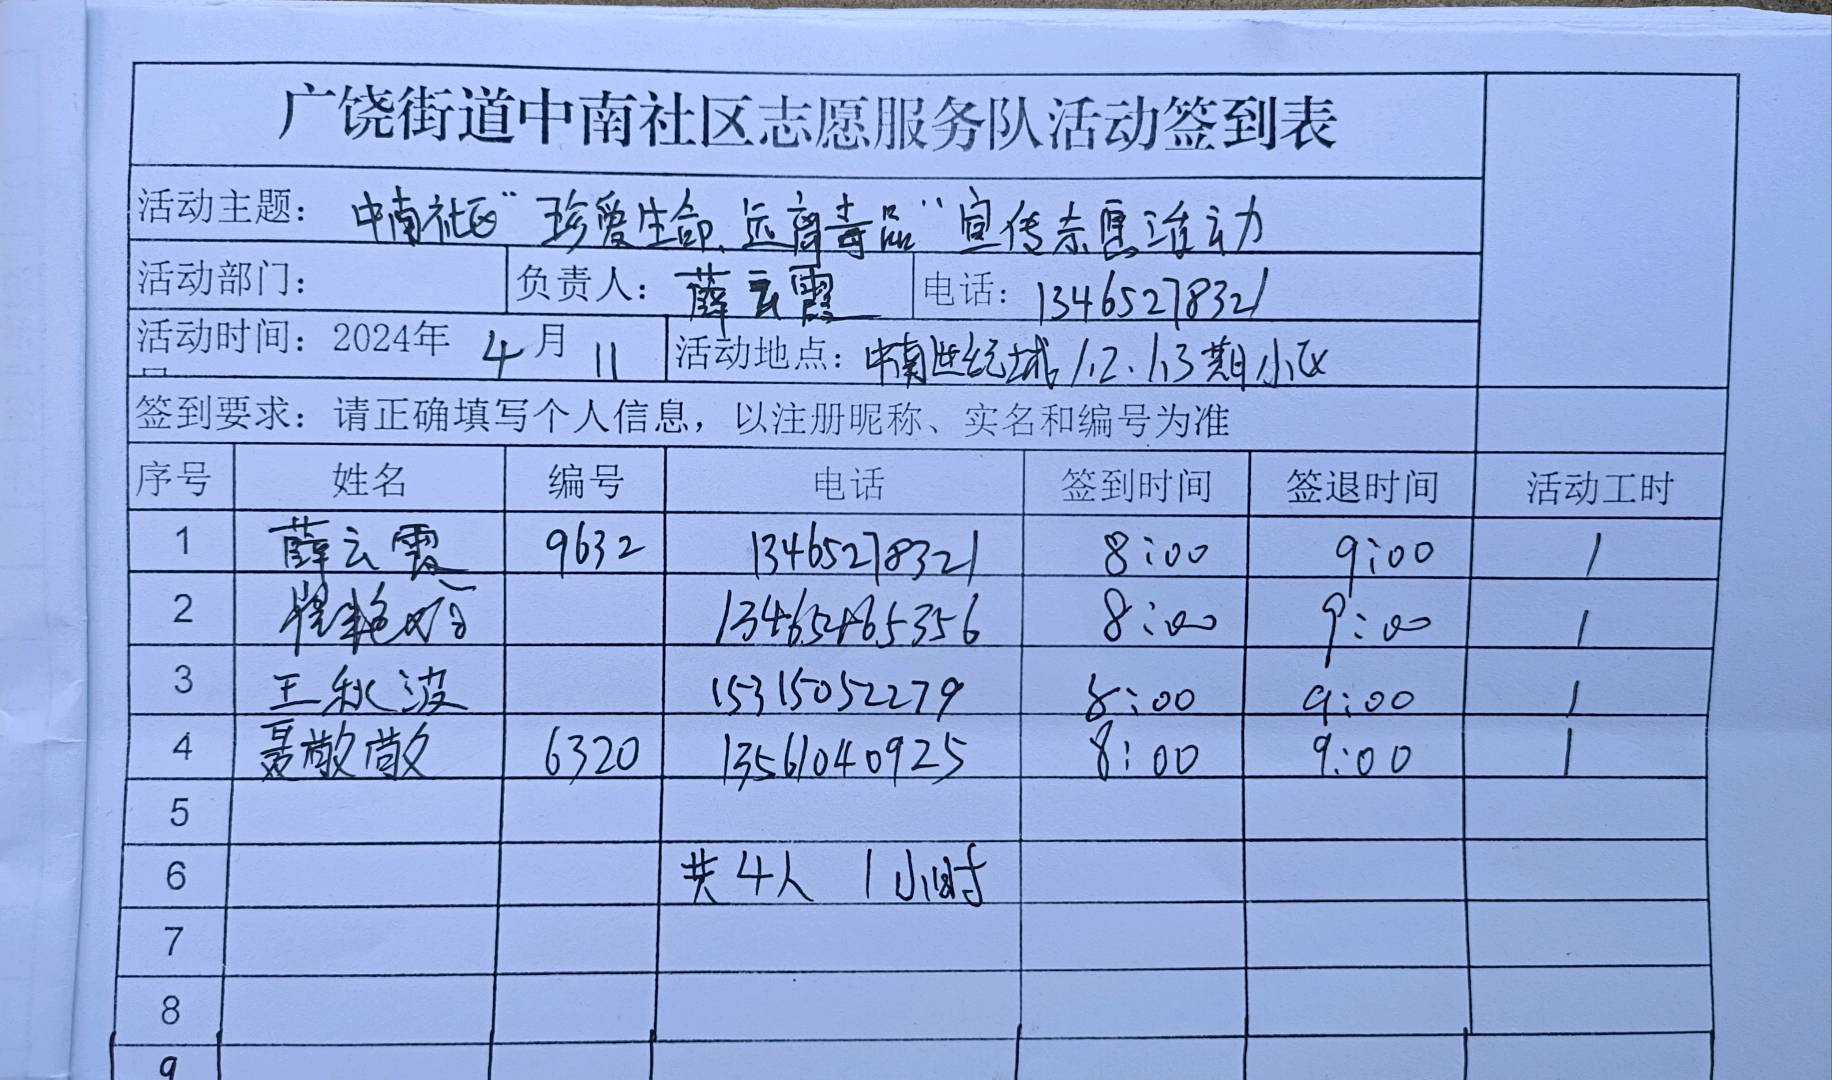 广饶街道中南社区志愿服务队活动签到表
活动主题：中南社区"珍爱生命、远离毒品"宣传志愿活动
活动部门： 负责人：薛云霞 电话：13465278321
活动时间：2024年4月11 活动地点：中南世纪城1.2.1.3期小区
签到要求：请正确填写个人信息，以注册昵称、实名和编号为准
序号 姓名 编号 电话 签到时间 签退时间 活动工时
1 薛云霞 9632 13465278321 8:00 9:00 1
2 8:00 9:00 1
3 王秋波 15315052279 8:00 9:00 1
4 聂敬敬 6320 13561040925 8:00 9:00 1
5
6 共4人 1小时
7
8
9